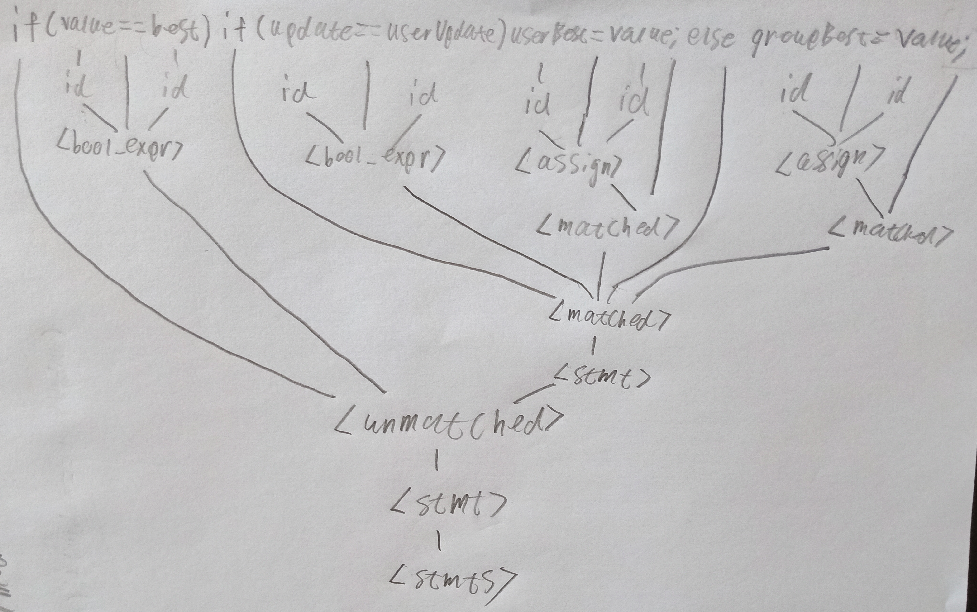 if(value==best) if(update==userUpdate)userBest=value; else groupBest=value;
id id id id id id id id
<bool_expr> <bool_expr> <assign> <assign>
<matched> <matched>
<matched>
<stmt>
<unmatched>
<stmt>
<stmts>